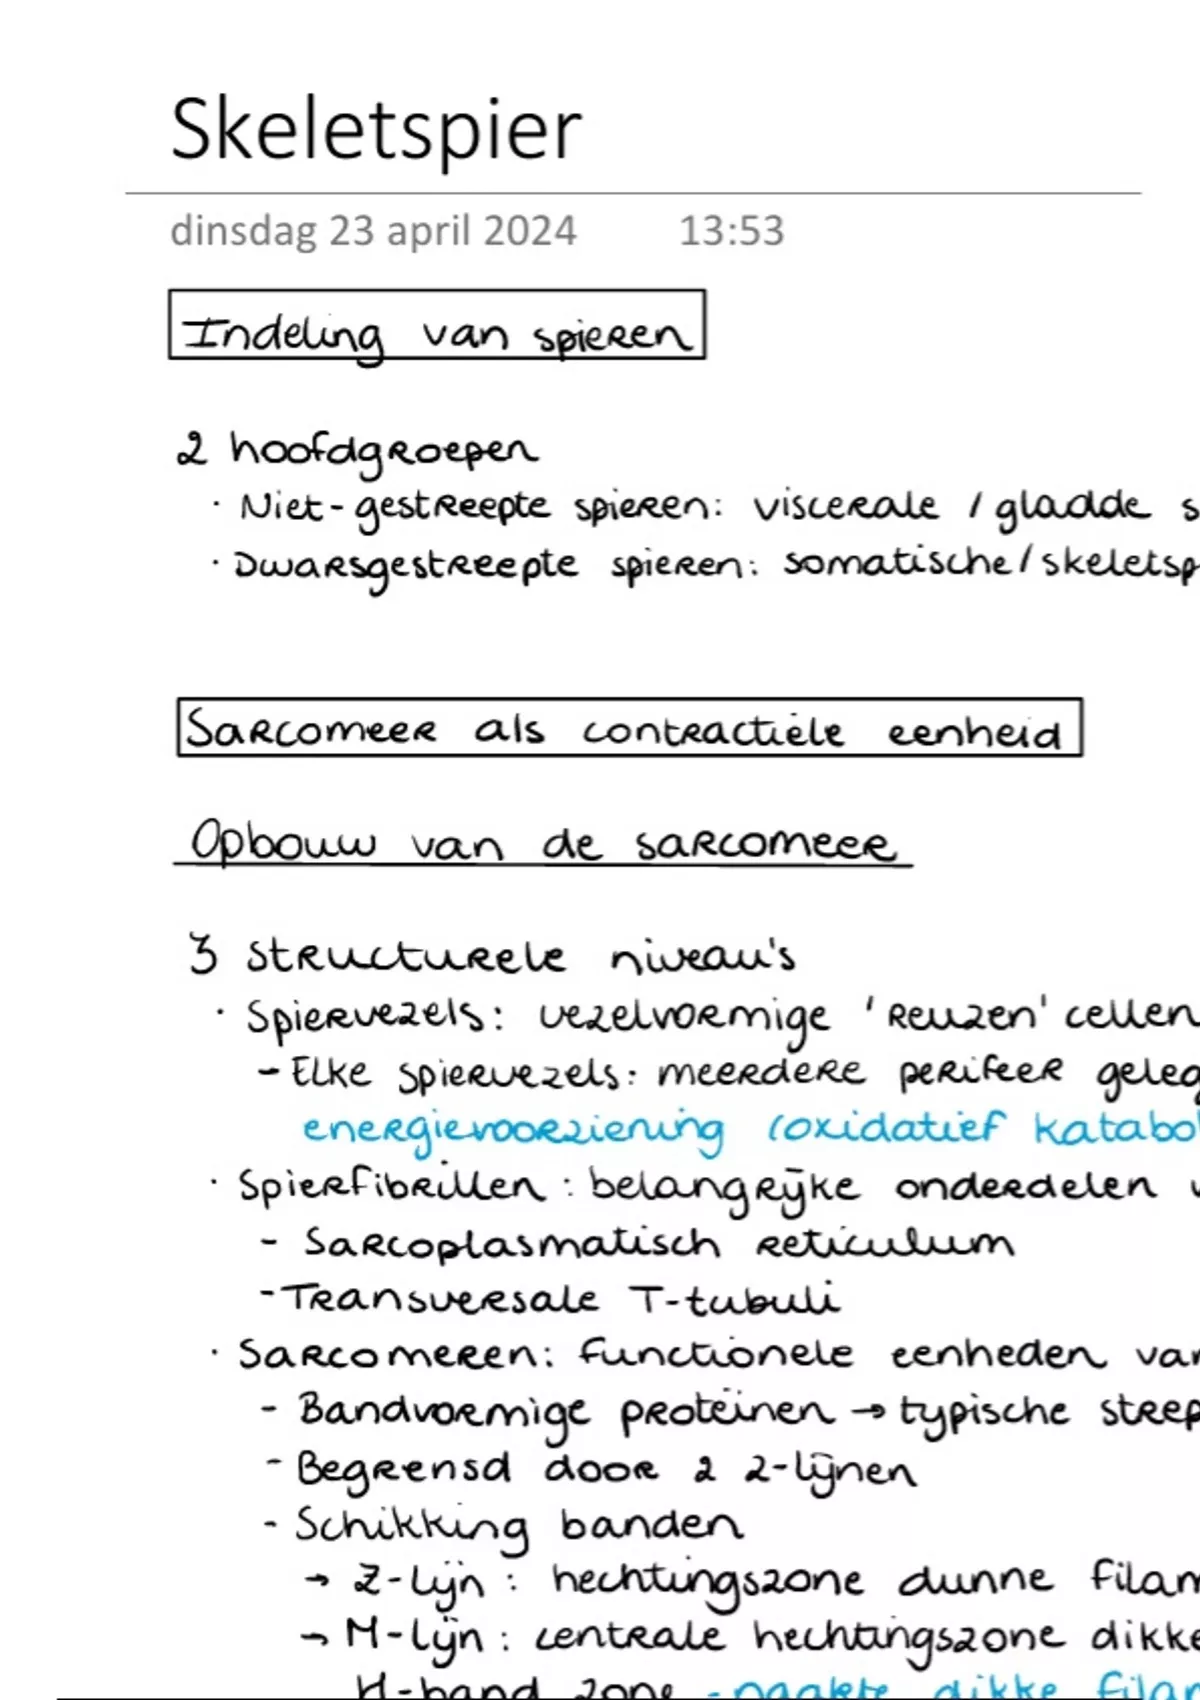 Skeletspier
dinsdag 23 april 2024 13:53
Indeling van spieren
2 hoofdgroepen
· Niet-gestreepte spieren: viscerale / gladde s
· Dwarsgestreepte spieren: somatische/skeletsp
Sarcomeer als contractiele eenheid
Opbouw van de sarcomeer
3 structurele niveau's
· Spiervezels: vezelvormige 'reuzen' cellen
- Elke spiervezels: meerdere perifeer geleg
energievoorziening (oxidatief katabol
· Spierfibrillen: belangrijke onderdelen v
- Sarcoplasmatisch reticulum
- Transversale T-tubuli
· Sarcomeren: functionele eenheden van
- Bandvormige proteïnen → typische streep
- Begrensd door 2 Z-lijnen
- Schikking banden
→ Z-lijn: hechtingszone dunne filam
→ M-lijn: centrale hechtingszone dikke
H-band zone - naakte dikke filam